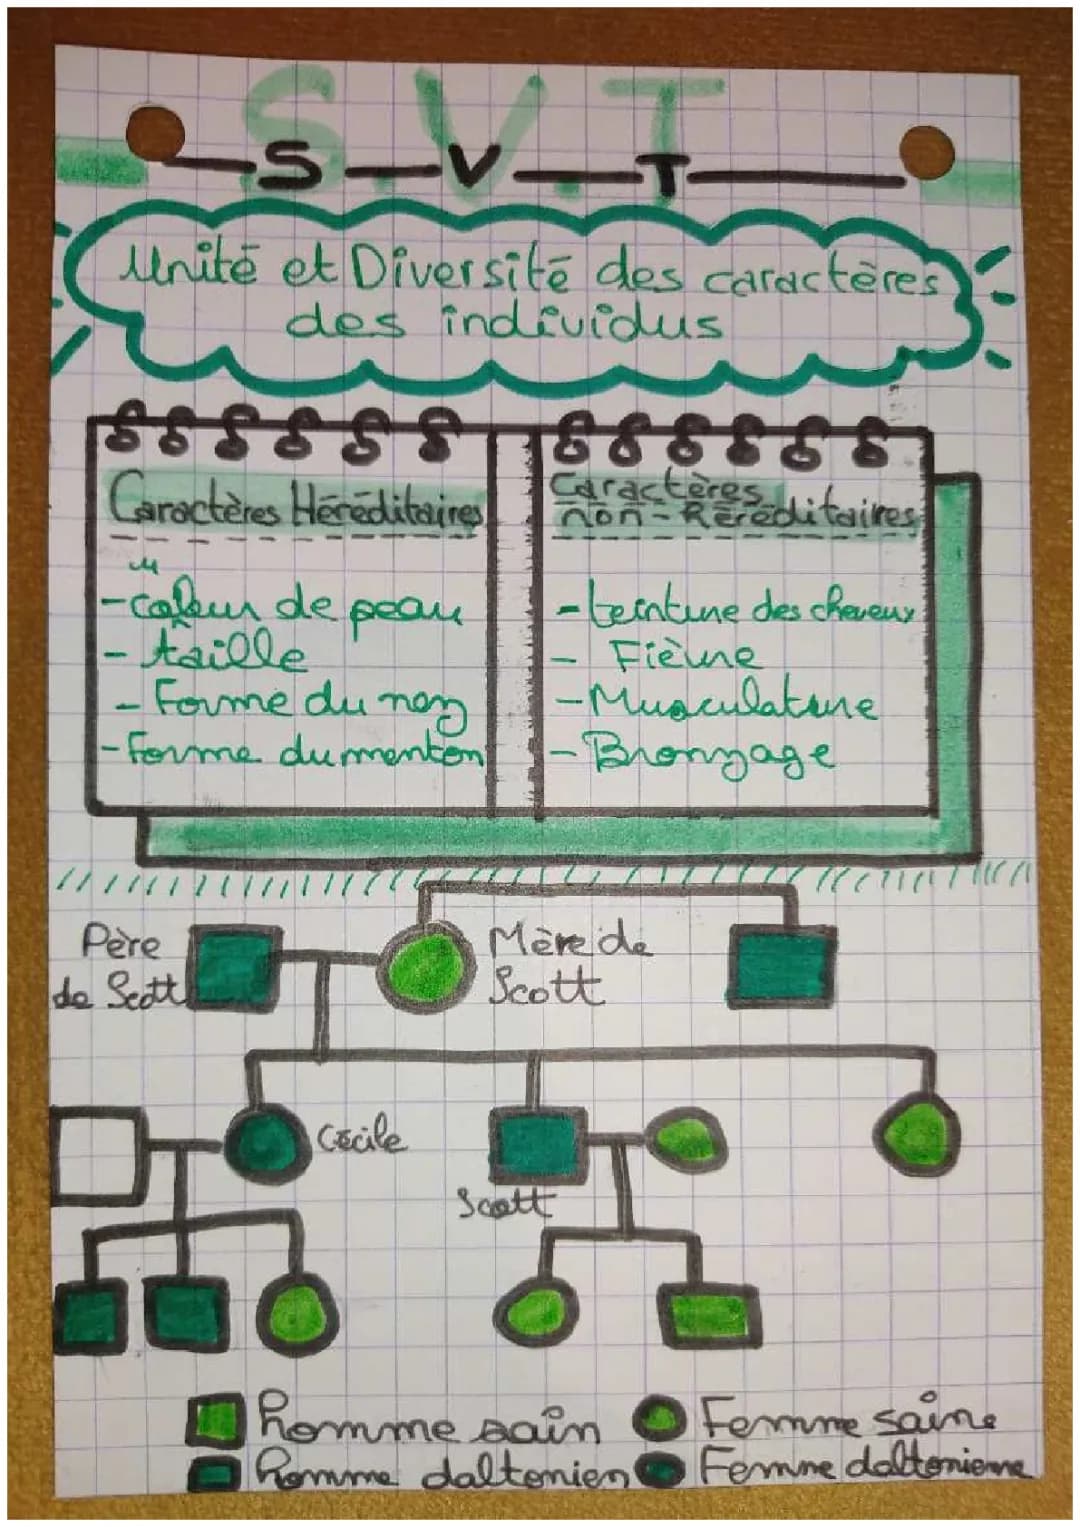 S.V.T
S V T
Unité et Diversité des caractères
des individus
Caractères Héréditaires
- couleur de peau
- taille
- Forme du nez
- Forme du menton
Caractères
non-héréditaires
- teinture des cheveux
- Fièvre
- Musculature
- Bronzage
Père
de Scott
Mère de
Scott
Cécile
Scott
homme sain
Femme saine
homme daltonien
Femme daltonienne